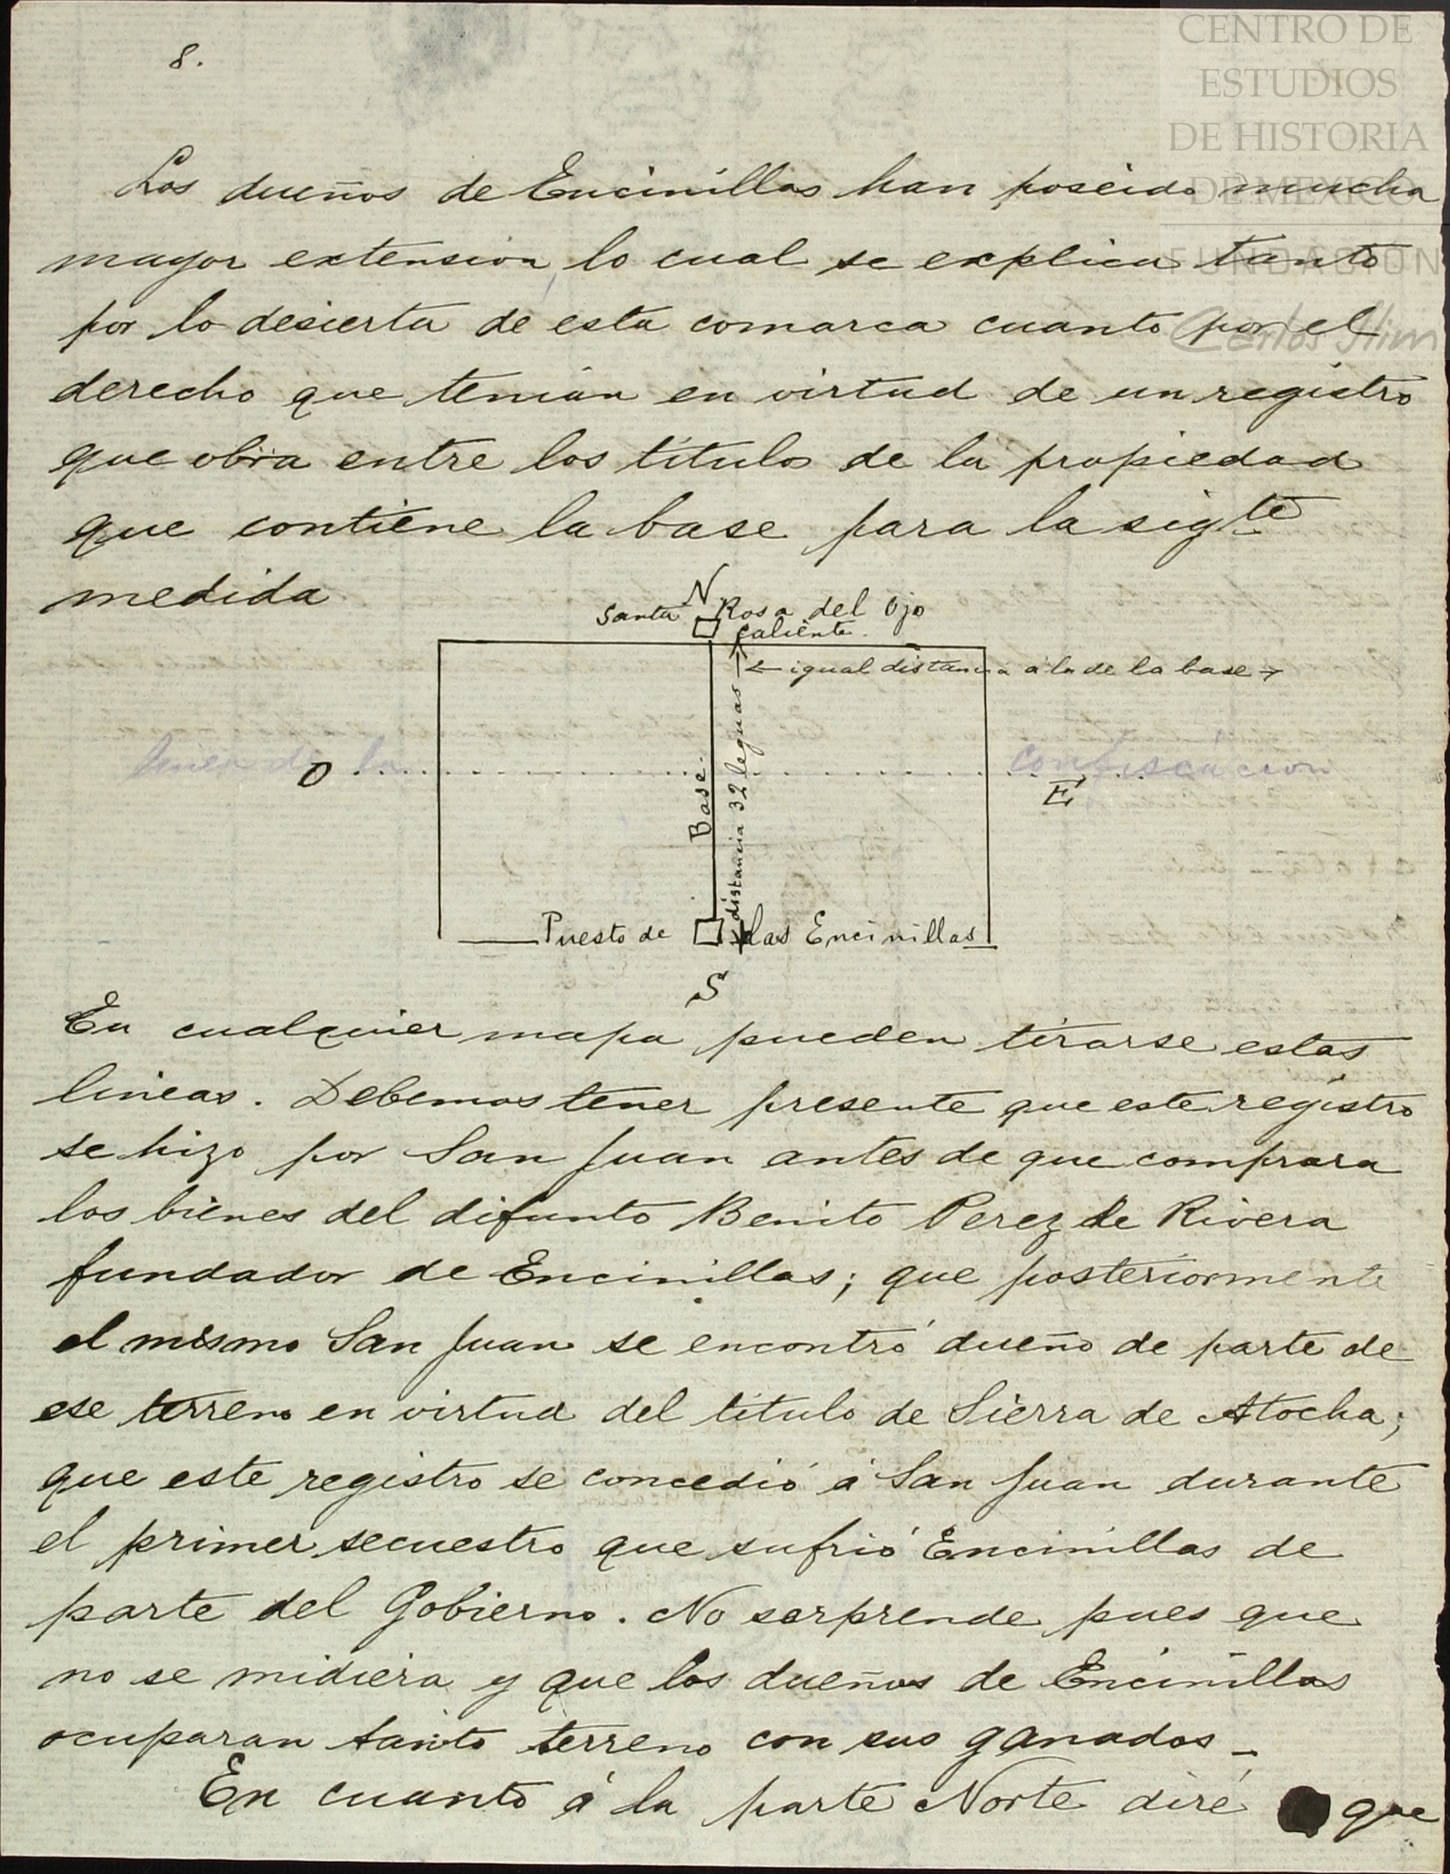 CENTRO DE
ESTUDIOS
DE HISTORIA
DE MEXICO
FUNDACION
Carlos Slim
8.
Los dueños de Encinillas han poseido mucha
mayor extension, lo cual se explica tanto
por lo desierta de esta comarca cuanto por el
derecho que tenian en virtud de un registro
que obra entre los titulos de la propiedad
que contiene la base para la sigte
medida
N
Santa Rosa del Ojo
caliente.
← igual distancia a la de la base →
linea de la confiscacion
O
E
Base.
distancia 32 leguas
Puesto de las Encinillas
S
En cualquier mapa pueden tirarse estas
lineas. Debemos tener presente que este registro
se hizo por San Juan antes de que comprara
los bienes del difunto Benito Perez de Rivera
fundador de Encinillas; que posteriormente
el mismo San Juan se encontró dueño de parte de
ese terreno en virtud del titulo de Sierra de Atocha;
que este registro se concedió á San Juan durante
el primer secuestro que sufrió Encinillas de
parte del Gobierno. No sorprende pues que
no se midiera y que los dueños de Encinillas
ocuparan tanto terreno con sus ganados_
En cuanto á la parte Norte diré que